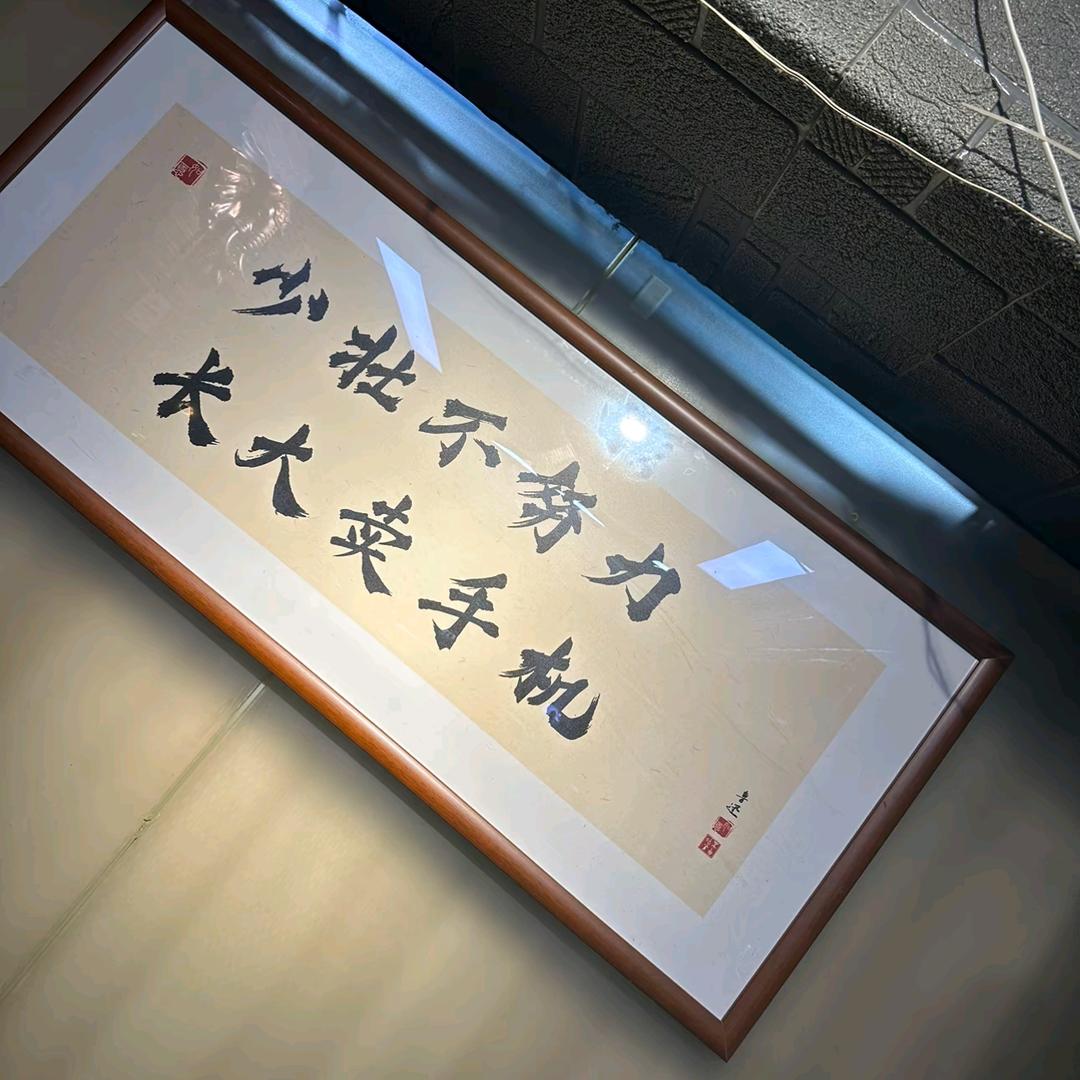 少壮不努力
长大卖手机
鲁迅